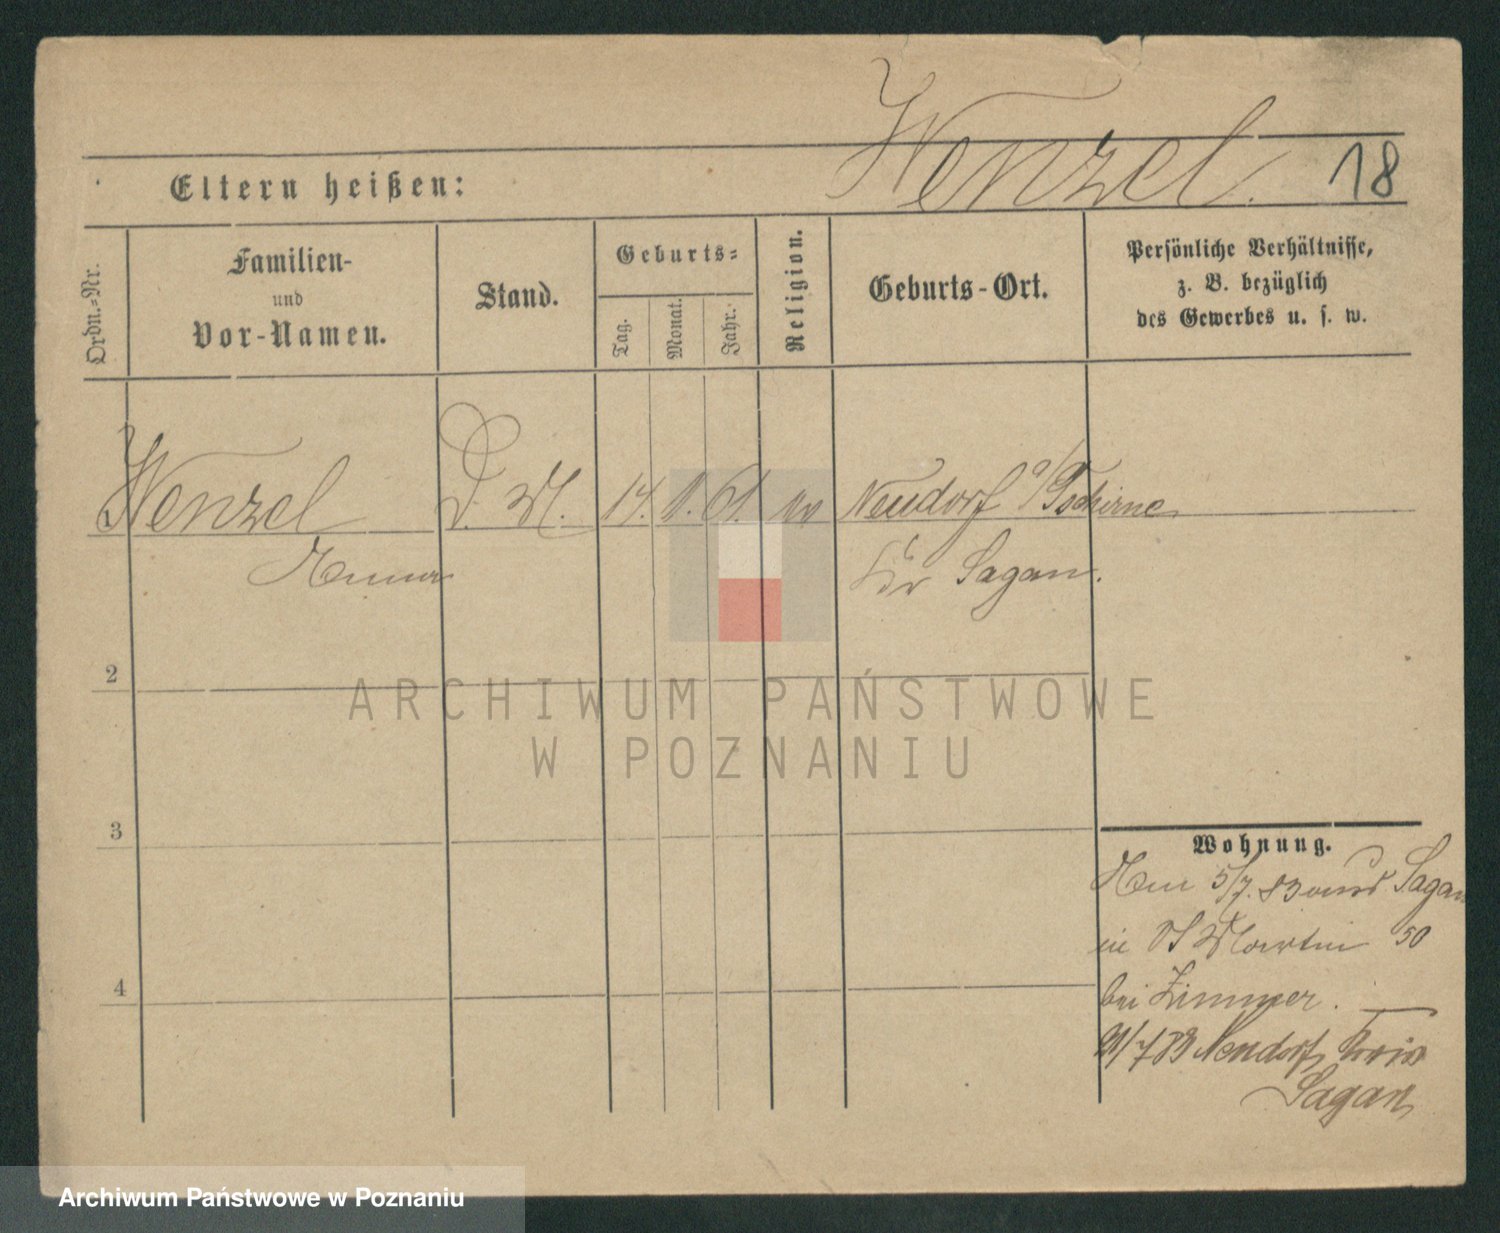 Wenzel.
18
Eltern heißen:
Ordn.-Nr.
Familien-
und
Vor-Namen.
Stand.
Geburts-
Tag.
Monat.
Jahr.
Religion.
Geburts-Ort.
Persönliche Verhältnisse,
z. B. bezüglich
des Gewerbes u. s. w.
Wenzel D. M. 14. 8. 61. ev Neudorf a/Tschirne
Kr Sagan.
2
3
4
ARCHIWUM PAŃSTWOWE
W POZNANIU
Wohnung.
5/7. 83 Sagan
St Martin 50
bei Zimmer.
21/7 83 Neudorf Kreis
Sagan
Archiwum Państwowe w Poznaniu